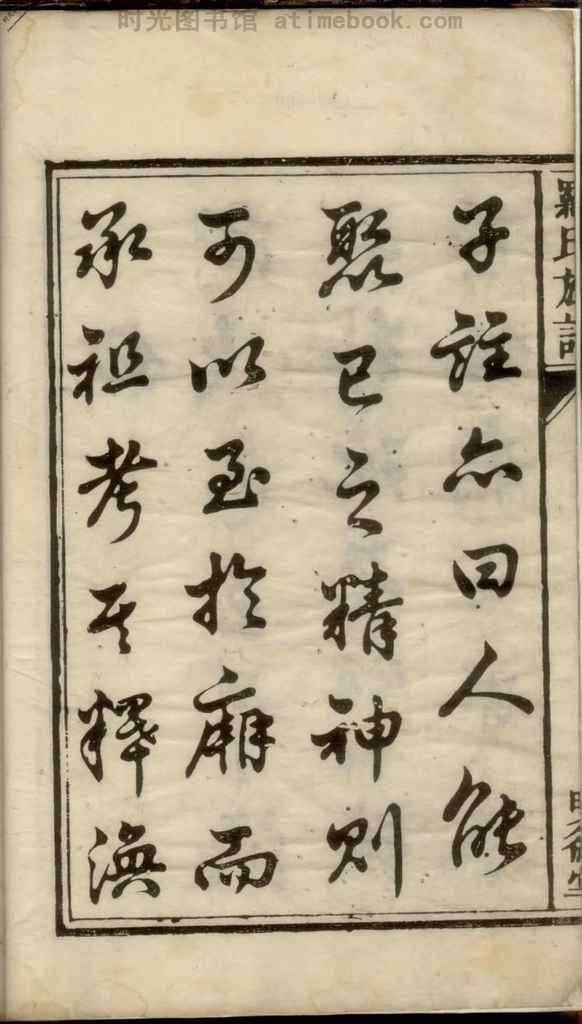 时光图书馆 atimebook.com
子註亦曰人能
聚己之精神則
可以至於廟而
承祖考其釋渙
羅氏族譜